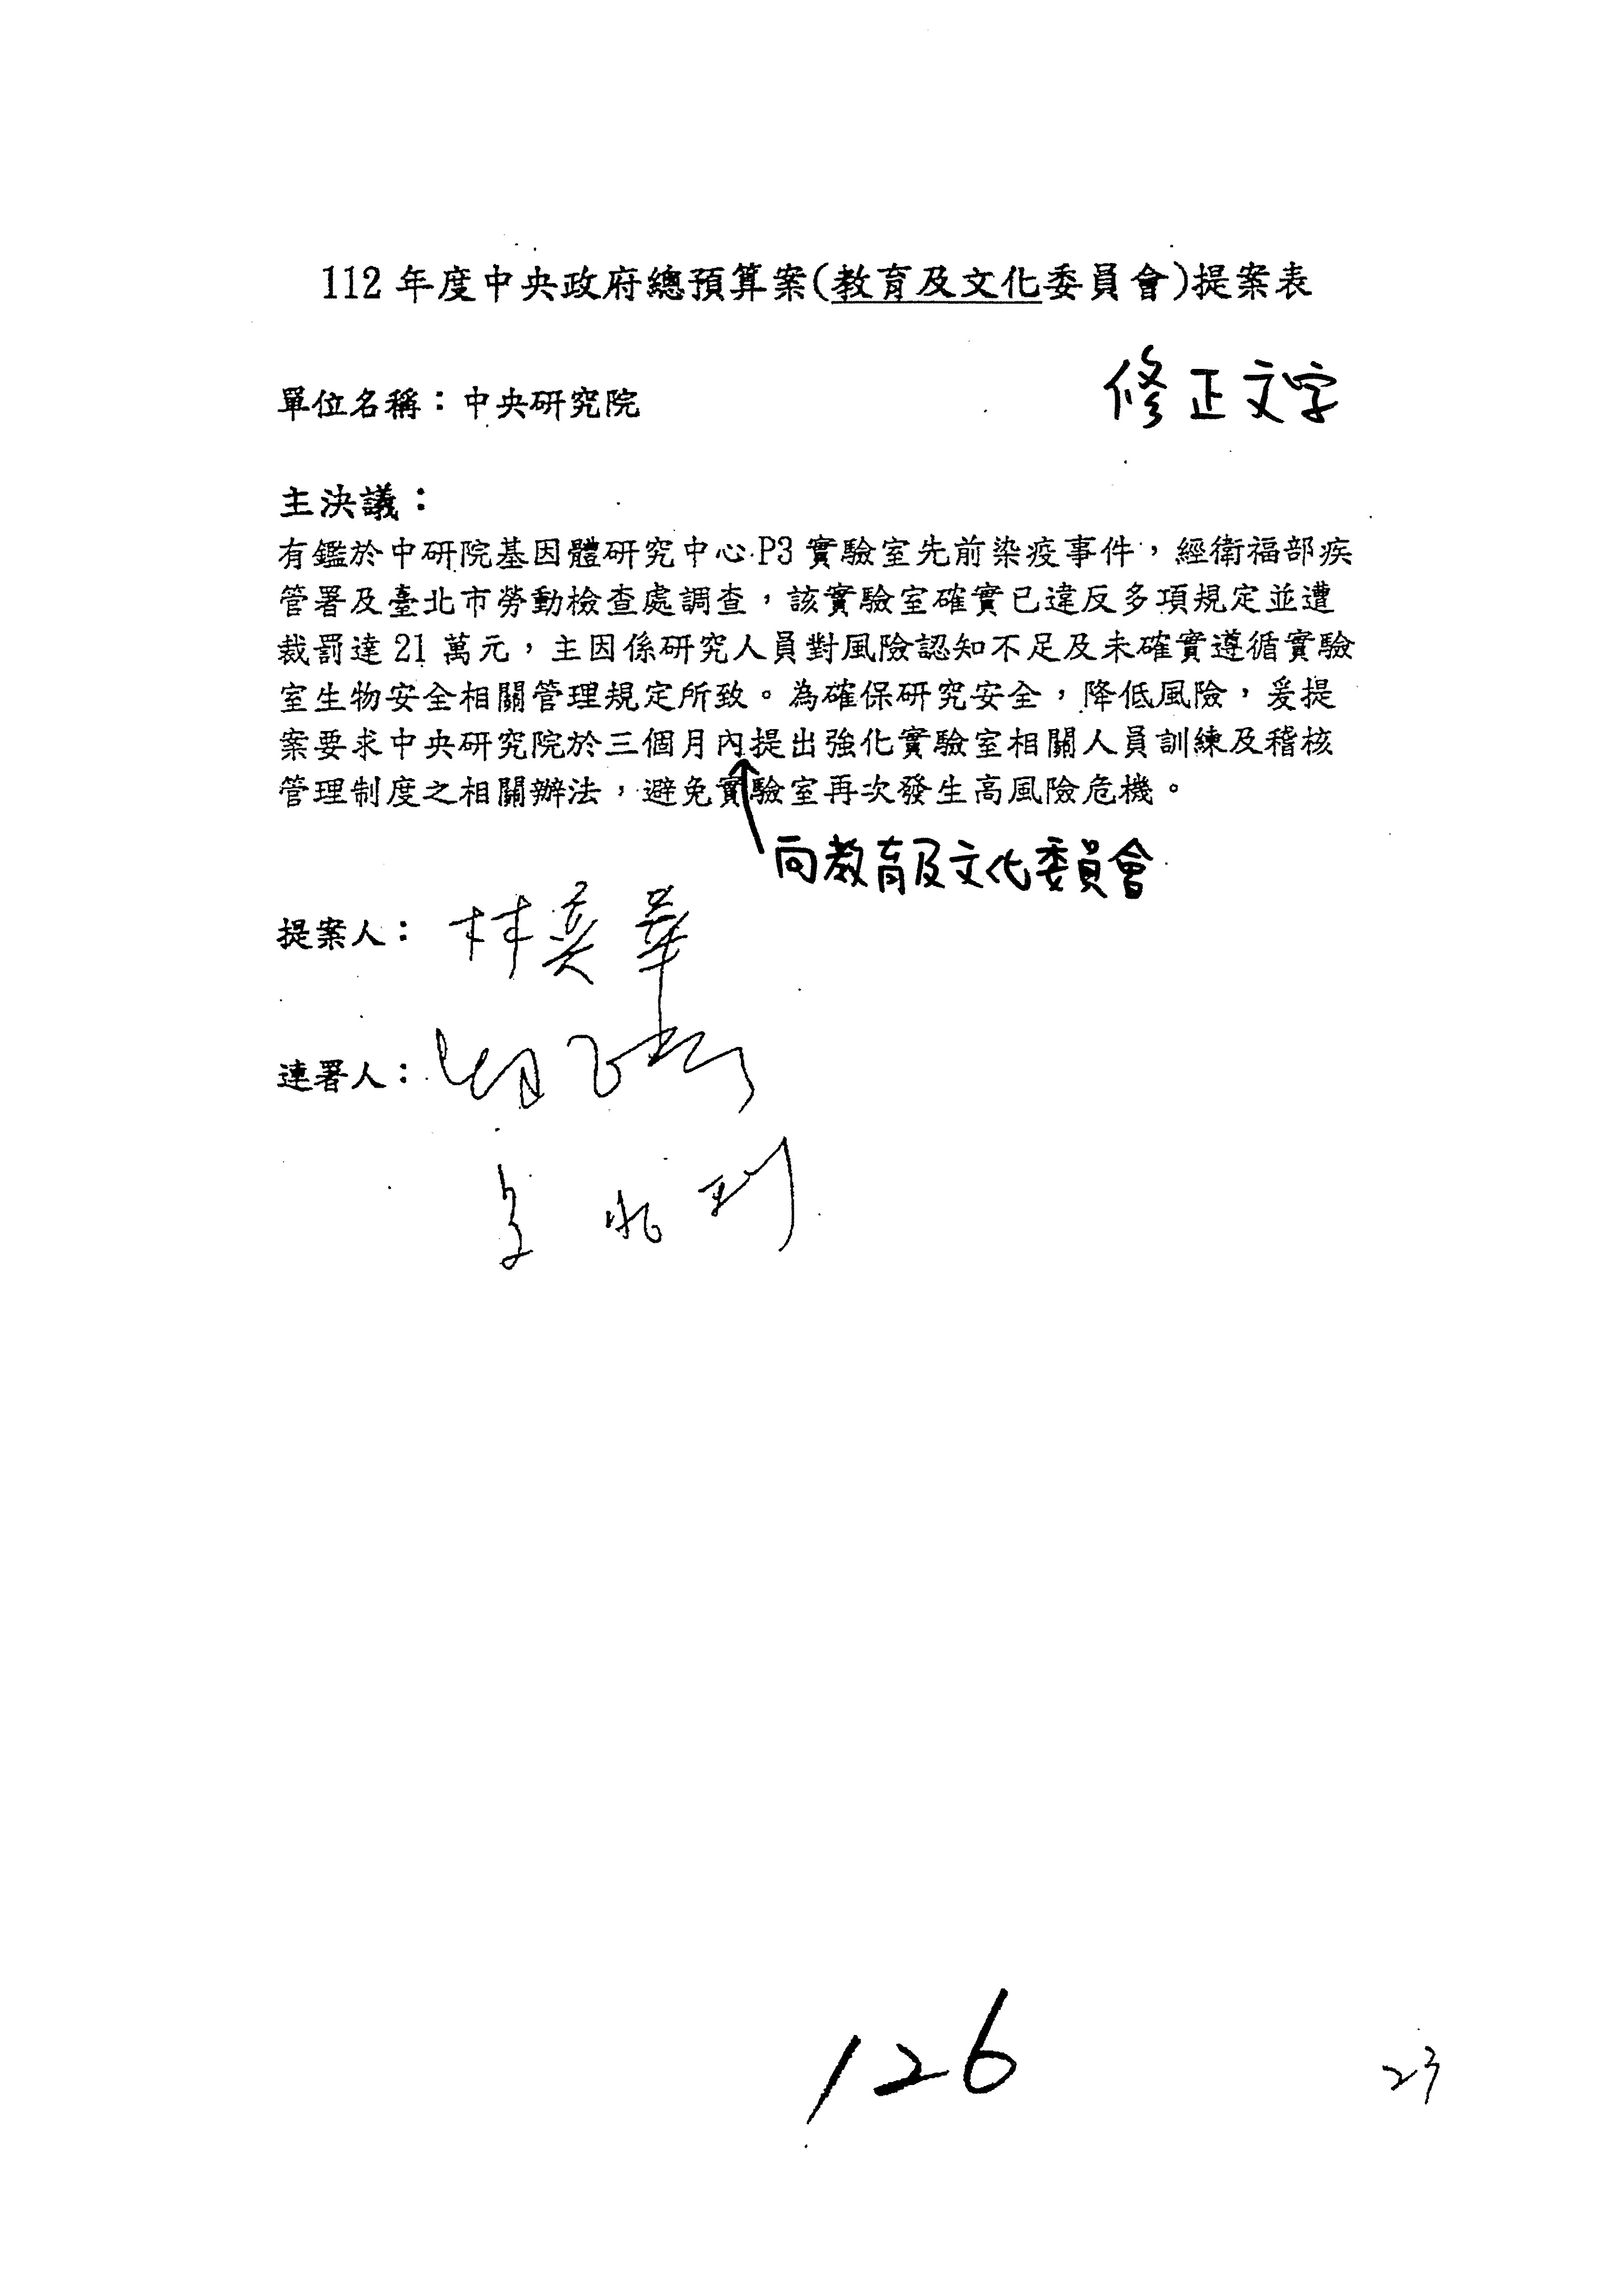 112年度中央政府總預算案(教育及文化委員會)提案表
修正文字
單位名稱：中央研究院
主決議：
有鑑於中研院基因體研究中心P3實驗室先前染疫事件，經衛福部疾
管署及臺北市勞動檢查處調查，該實驗室確實已違反多項規定並遭
裁罰達21萬元，主因係研究人員對風險認知不足及未確實遵循實驗
室生物安全相關管理規定所致。為確保研究安全，降低風險，爰提
案要求中央研究院於三個月內提出強化實驗室相關人員訓練及稽核
管理制度之相關辦法，避免實驗室再次發生高風險危機。
向教育及文化委員會
提案人：林奕華
連署人：
126
23